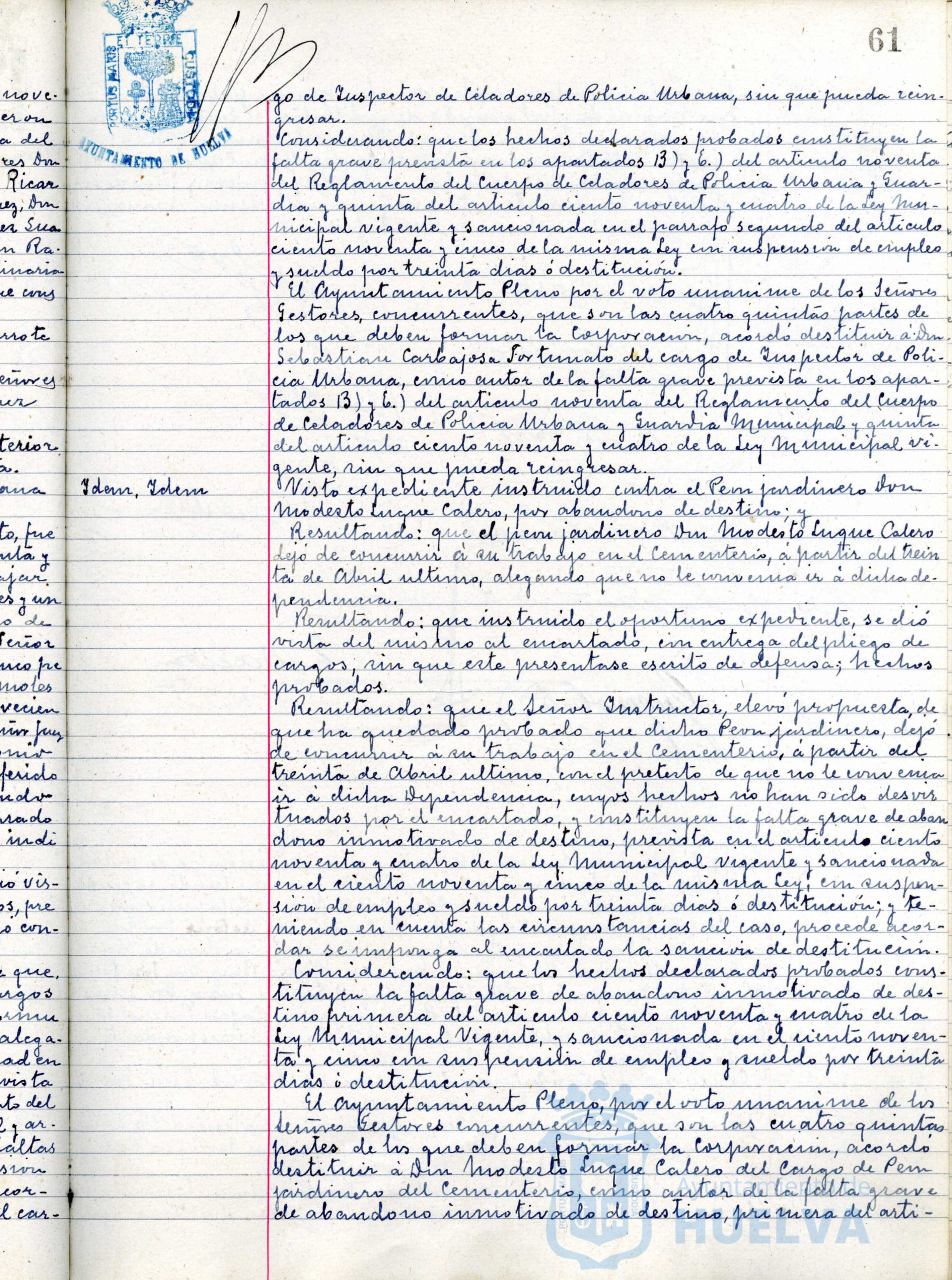 61
PORTUS MARIS ET TERRE CUSTODIA
AYUNTAMIENTO DE HUELVA
go de Inspector de Celadores de Policia Urbana, sin que pueda rein-
gresar.
Considerando: que los hechos declarados probados constituyen la
falta grave prevista en los apartados B) y 6.) del articulo noventa
del Reglamento del Cuerpo de Celadores de Policia Urbana y Guar-
dia y quinta del articulo ciento noventa y cuatro de la Ley Mu-
nicipal vigente y sancionada en el parrafo segundo del articulo
ciento noventa y cinco de la misma Ley con suspensión de empleo
y sueldo por treinta dias ó destitución.
El Ayuntamiento Pleno por el voto unanime de los Señores
Gestores, concurrentes, que son las cuatro quintas partes de
los que deben formar la Corporación, acordó destituir á Don
Sebastian Carbajosa Fortunato del cargo de Inspector de Poli-
cia Urbana, como autor de la falta grave prevista en los apar-
tados B) y 6.) del articulo noventa del Reglamento del Cuerpo
de Celadores de Policia Urbana y Guardia Municipal y quinta
del articulo ciento noventa y cuatro de la Ley Municipal vi-
gente, sin que pueda reingresar.
Idem, Idem
Visto expediente instruido contra el Peon jardinero Don
Modesto Luque Calero, por abandono de destino; y
Resultando: que el peon jardinero Don Modesto Luque Calero
dejó de concurrir á su trabajo en el Cementerio, á partir del trein
ta de Abril ultimo, alegando que no le convenia ir á dicha de-
pendencia.
Resultando: que instruido el oportuno expediente, se dió
vista del mismo al encartado, con entrega del pliego de
cargos, sin que este presentase escrito de defensa; hechos
probados.
Resultando: que el Señor Instructor, elevó propuesta, de
que ha quedado probado que dicho Peon jardinero, dejó
de concurrir á su trabajo en el Cementerio, á partir del
treinta de Abril ultimo, con el pretexto de que no le convenia
ir á dicha Dependencia, cuyos hechos no han sido desvir
tuados por el encartado, y constituyen la falta grave de aban
dono inmotivado de destino, prevista en el articulo ciento
noventa y cuatro de la Ley Municipal vigente y sancionada
en el ciento noventa y cinco de la misma Ley, con suspen-
sión de empleo y sueldo por treinta dias ó destitución; y te-
niendo en cuenta las circunstancias del caso, procede acor-
dar se imponga al encartado la sanción de destitución.
Considerando: que los hechos declarados probados cons-
tituyen la falta grave de abandono inmotivado de des-
tino primera del articulo ciento noventa y cuatro de la
Ley Municipal Vigente, y sancionada en el ciento noven-
ta y cinco con suspensión de empleo y sueldo por treinta
dias ó destitución.
El Ayuntamiento Pleno, por el voto unanime de los
Señores Gestores concurrentes, que son las cuatro quintas
partes de los que deben formar la Corporación, acordó
destituir á Don Modesto Luque Calero del Cargo de Peon
jardinero del Cementerio, como autor de la falta grave
de abandono inmotivado de destino, primera del arti-
Ayuntamiento de
HUELVA